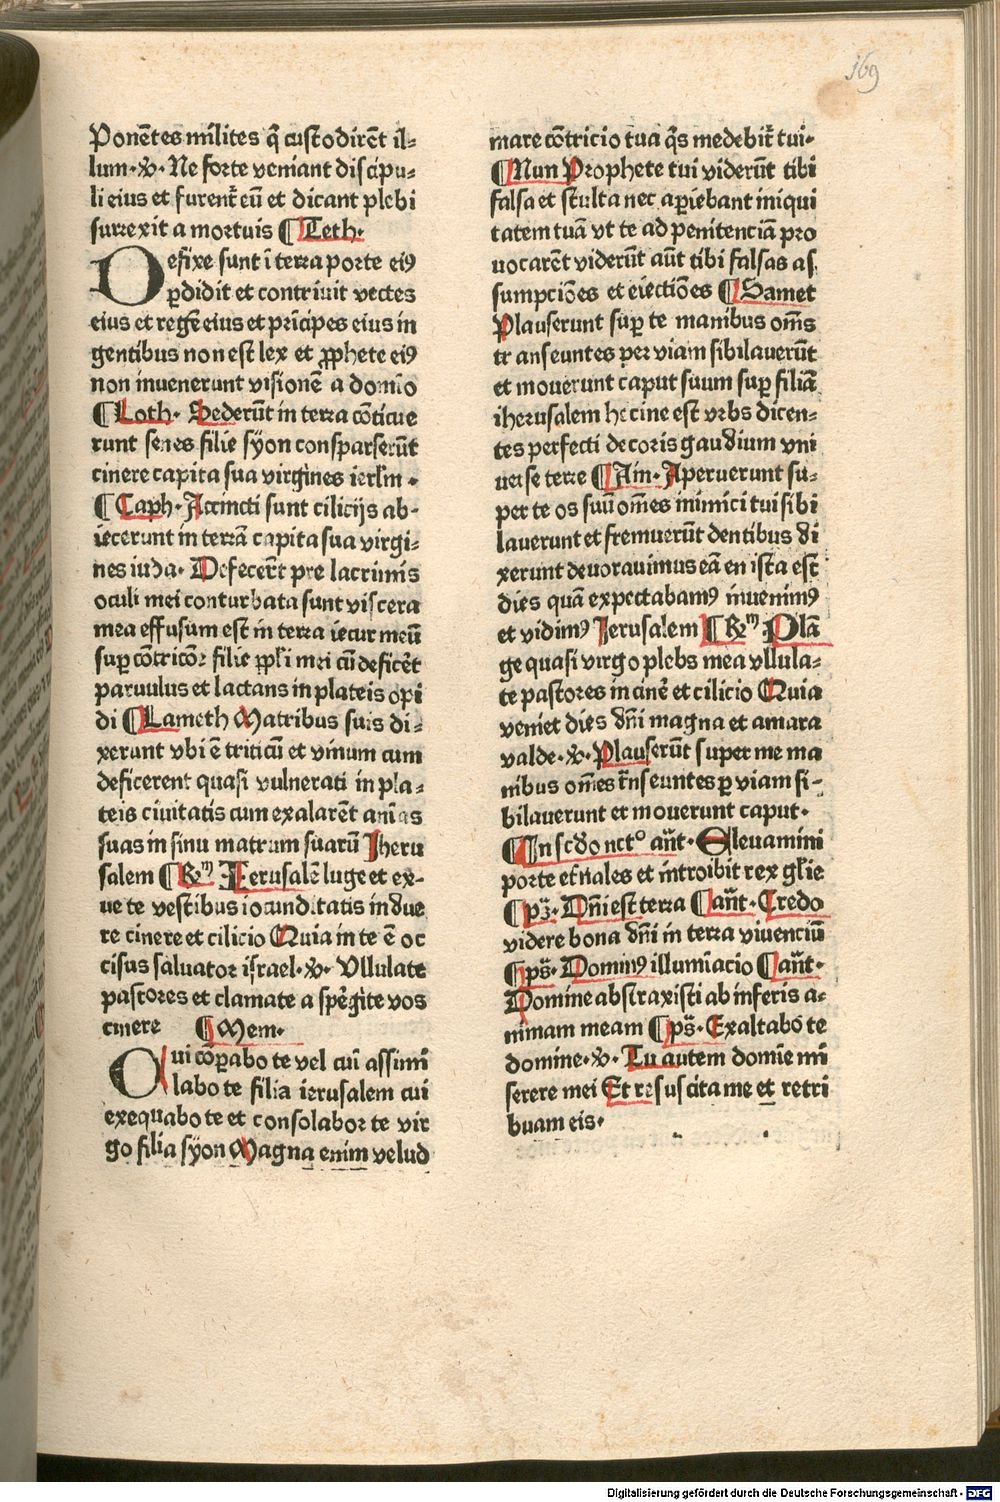 169
Ponētes milites q̄ custodirēt il⸗
lum·℣·Ne forte veniant discipu⸗
li eius et furent᷑ eū et dicant plebi
surrexit a mortuis ¶ Teth·
Defixe sunt ī terra porte eiꝰ
ꝑdidit et contriuit vectes
eius et regē eius et prīcipes eius in
gentibus non est lex et ꝓphete eiꝰ
non inuenerunt visionē a domīo
¶ Loth· Sederūt in terra cōticue
runt senes filie syon consparserūt
cinere capita sua virgines ierlm̄·
¶ Caph· Accincti sunt cilicijs ab⸗
iecerunt in terrā capita sua virgi⸗
nes iuda· Defecerūt pre lacrimis
oculi mei conturbata sunt viscera
mea effusum est in terra iecur meū
suꝑ cōtricōꝫ filie ppl̄i mei cū deficēt
paruulus et lactans in plateis opi
di ¶ Lameth Matribus suis di⸗
xerunt vbi ē triticū et vinum cum
deficerent quasi vulnerati in pla⸗
teis ciuitatis cum exalarēt animas
suas in sinu matrum suarū Iheru
salem ¶ Rm̄ Ierusalē luge et ex⸗
ue te vestibus iocunditatis indue
re cinere et cilicio Quia in te ē oc
cisus saluator israel·℣· Vllulate
pastores et clamate a spergite vos
cinere ¶ Mem·
Cui cōꝑabo te vel cui assimi
labo te filia ierusalem cui
exequabo te et consolabor te vir
go filia syon Magna enim velud
mare cōtricio tua q̄s medebit᷑ tui·
¶ Nun Prophete tui viderūt tibi
falsa et stulta nec aꝑiebant iniqui
tatem tuā vt te ad penitenciā pro
uocarēt viderūt aūt tibi falsas as
sumpciōes et eiectiōes ¶ Samet
Plauserunt suꝑ te manibus om̄s
transeuntes per viam sibilauerūt
et mouerunt caput suum suꝑ filiā
iherusalem heccine est vrbs dicen⸗
tes perfecti decoris gaudium vni
uerse terre ¶ Ain· Aperuerunt su⸗
per te os suū om̄es inimici tui sibi
lauerunt et fremuerūt dentibus di
xerunt deuorauimus eā en ista est
dies quā expectabamꝰ inuenimꝰ
et vidimꝰ Ierusalem ¶ Rm̄· Plā
ge quasi virgo plebs mea vllula⸗
te pastores in cinē et cilicio Quia
veniet dies dn̄i magna et amara
valde·℣· Plauserūt super me ma
nibus om̄es trn̄seuntes ꝑ viam si⸗
bilauerunt et mouerunt caput·
¶ In scd̄o nctº an̄t· Eleuamini
porte et̄nales et introibit rex gl̄ie
¶ pꝫ· Dn̄i est terra ¶ an̄t· Credo
videre bona dn̄i in terra viuenciū
¶ ps̄· Dominꝰ illumīacio ¶ an̄t·
Domine abstraxisti ab inferis a⸗
nimam meam ¶ ps̄· Exaltabo te
domine·℣· Tu autem domīe mi
serere mei Et resuscita me et retri
buam eis·
Digitalisierung gefördert durch die Deutsche Forschungsgemeinschaft - DFG